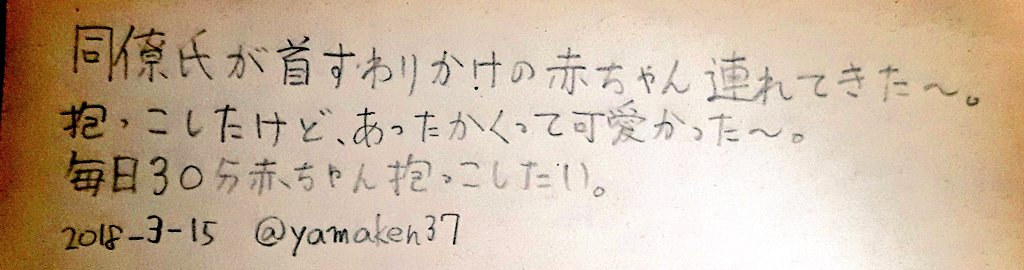 同僚氏が首すわりかけの赤ちゃん連れてきた〜。
抱っこしたけど、あったかくって可愛かった〜。
毎日30分赤ちゃん抱っこしたい。
2018-3-15 @yamaken37